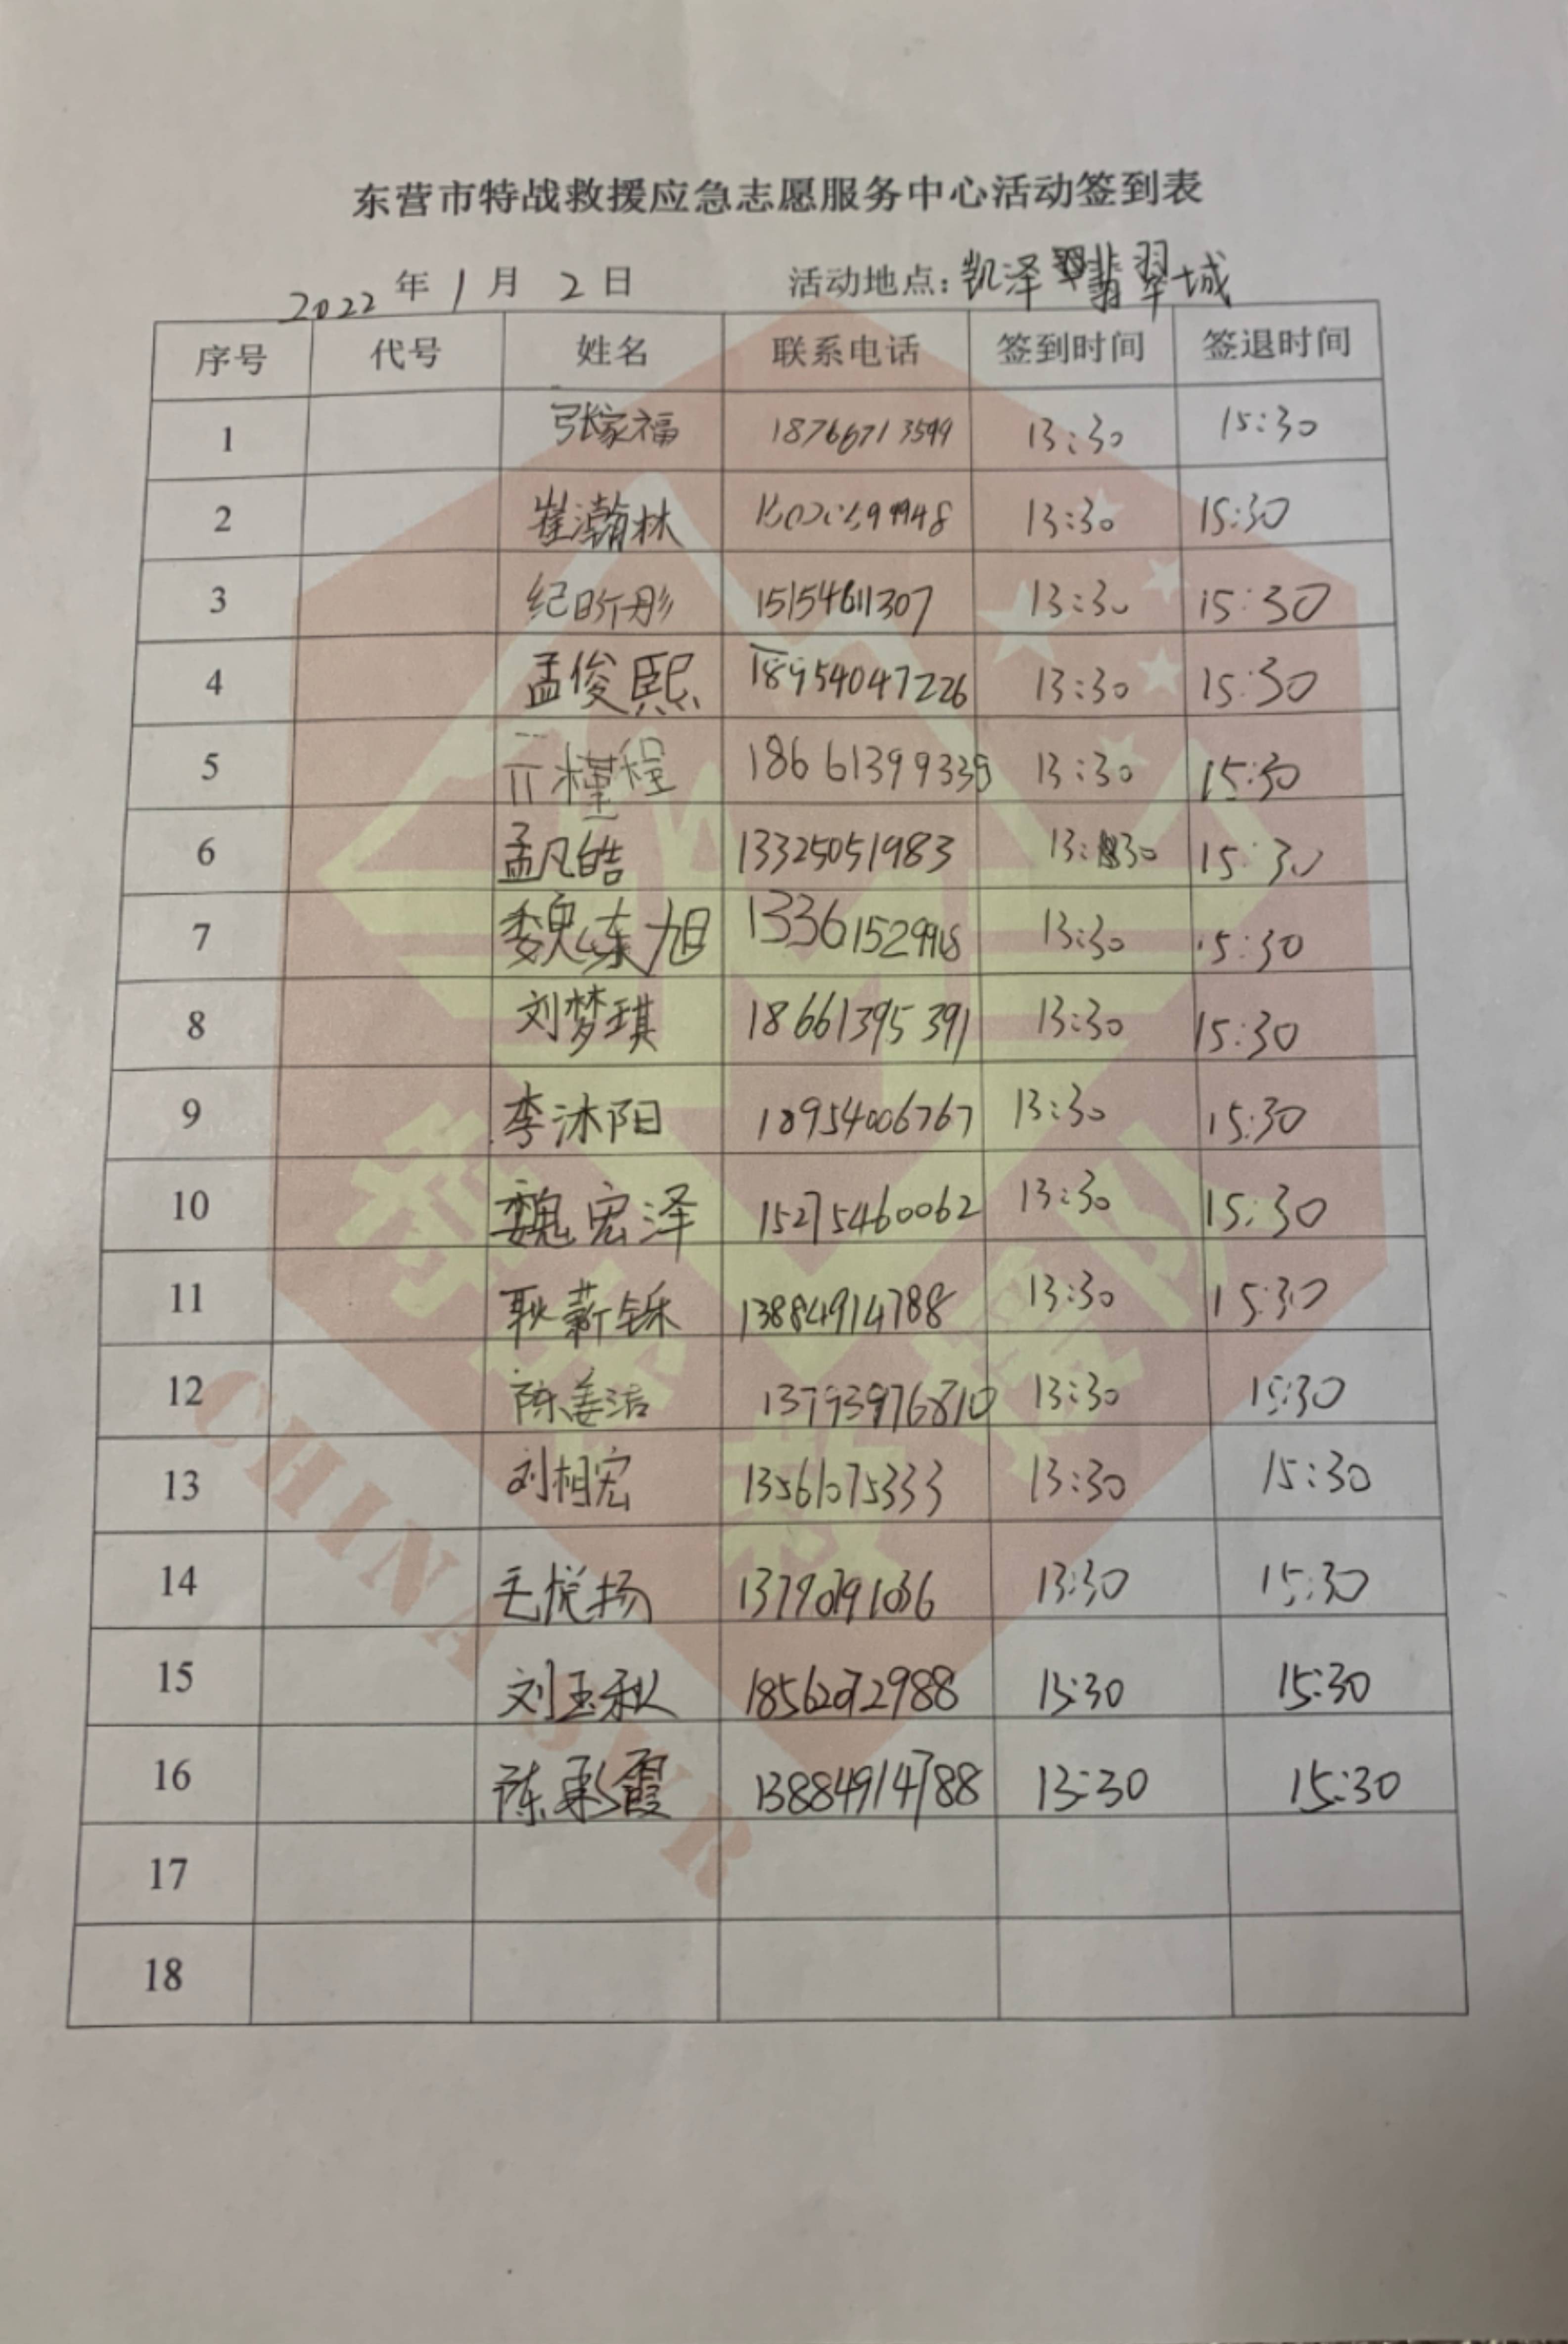 东营市特战救援应急志愿服务中心活动签到表
2022 年 1 月 2 日 活动地点：凯泽翡翠城
序号 代号 姓名 联系电话 签到时间 签退时间
1 张家福 18766713599 13:30 15:30
2 崔瀚林 13:30 15:30
3 纪昕彤 15154611307 13:30 15:30
4 孟俊熙 18954047226 13:30 15:30
5 18661399339 13:30 15:30
6 孟凡皓 13325051983 13:30 15:30
7 魏东旭 13361529918 13:30 15:30
8 刘梦琪 18661395391 13:30 15:30
9 李沐阳 18954006767 13:30 15:30
10 魏宏泽 15275460062 13:30 15:30
11 耿薪铄 13884914788 13:30 15:30
12 陈姜洁 13793976810 13:30 15:30
13 刘相宏 13561075333 13:30 15:30
14 毛悦扬 13:30 15:30
15 刘玉秋 13:30 15:30
16 陈彩霞 13884914788 13:30 15:30
17
18
特战救援队
CHINA